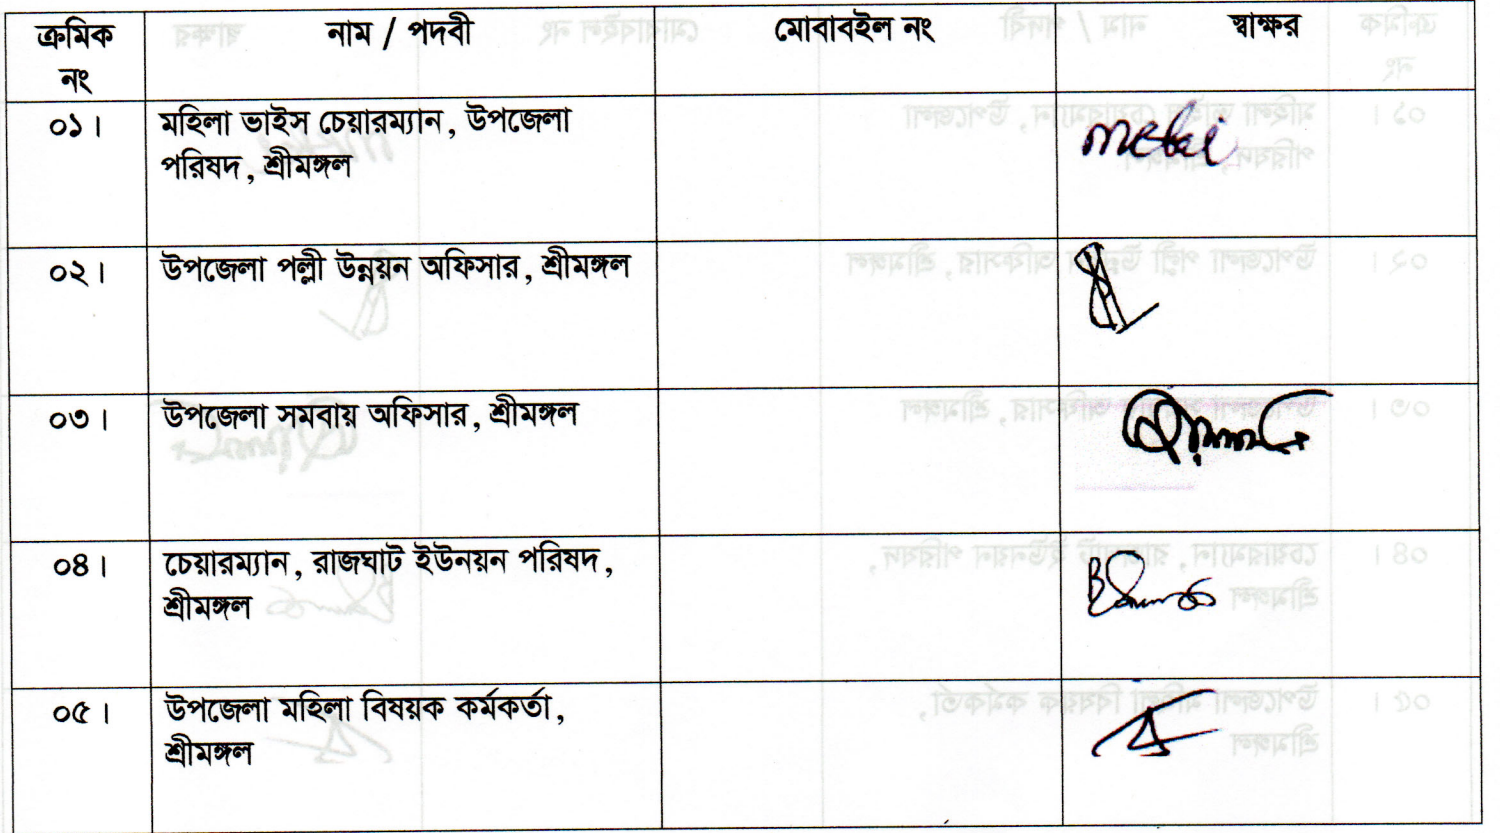 ক্রমিক নং নাম / পদবী মোবাবইল নং স্বাক্ষর
০১। মহিলা ভাইস চেয়ারম্যান, উপজেলা
পরিষদ, শ্রীমঙ্গল
০২। উপজেলা পল্লী উন্নয়ন অফিসার, শ্রীমঙ্গল
০৩। উপজেলা সমবায় অফিসার, শ্রীমঙ্গল
০৪। চেয়ারম্যান, রাজঘাট ইউনয়ন পরিষদ,
শ্রীমঙ্গল
০৫। উপজেলা মহিলা বিষয়ক কর্মকর্তা,
শ্রীমঙ্গল